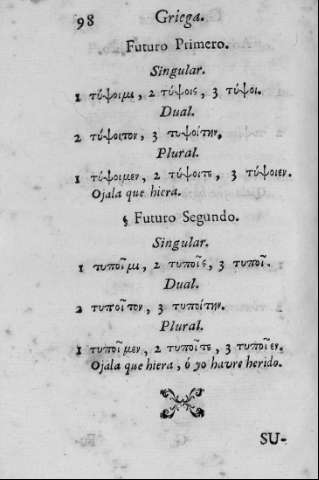 98 Griega.
Futuro Primero.
Singular.
1 τύψοιμι, 2 τύψοις, 3 τύψοι.
Dual.
2 τύψοιτον, 3 τυψοίτην.
Plural.
1 τύψοιμεν, 2 τύψοιτε, 3 τύψοιεν.
Ojala que hiera.
§ Futuro Segundo.
Singular.
1 τυποῖμι, 2 τυποῖς, 3 τυποῖ.
Dual.
2 τυποῖτον, 3 τυποίτην.
Plural.
1 τυποῖμεν, 2 τυποῖτε, 3 τυποῖεν.
Ojala que hiera, ó yo havre herido.
SU-